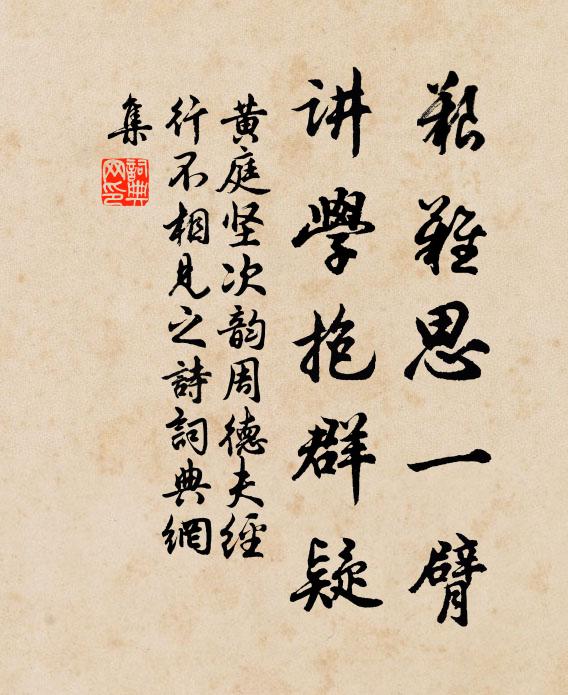 艱難思一臂
讲學抱群疑
黄庭坚次韵周德夫經
行不相見之詩詞典網
集
詞典
网印